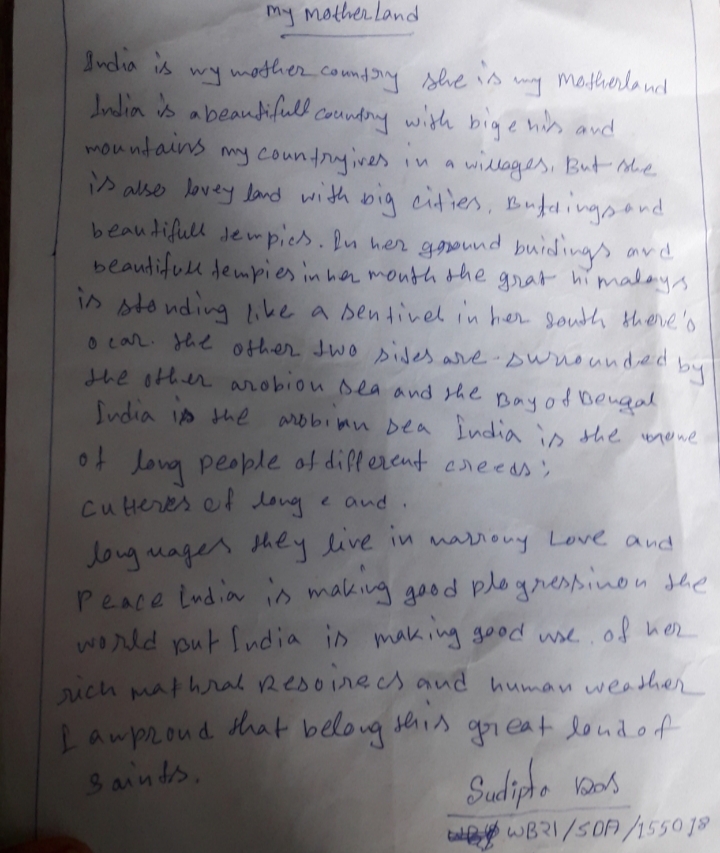 My Motherland
India is my mother country she is my Motherland
India is a beautifull country with big e his and
mountains my country ives in a villages. But she
is also lovey land with big cities. Butdings and
beautifull tempics. In her ground buidings and
beautifull tempies in her month the grat himalays
is standing like a sentivel in her south there's
o car. the other two sides are surrounded by
the other arobion sea and the Bay of Bengal
India is the arobian sea India is the
of long people of different creeds;
cutteres of long e and.
longuages they live in narrony Love and
Peace India is making good plogressinon the
world But India is making good use of her
rich mathral Resoirecs and human weather
I am proud that belong this great land of
Saints.
Sudipto Das
WB21/SDA/155018